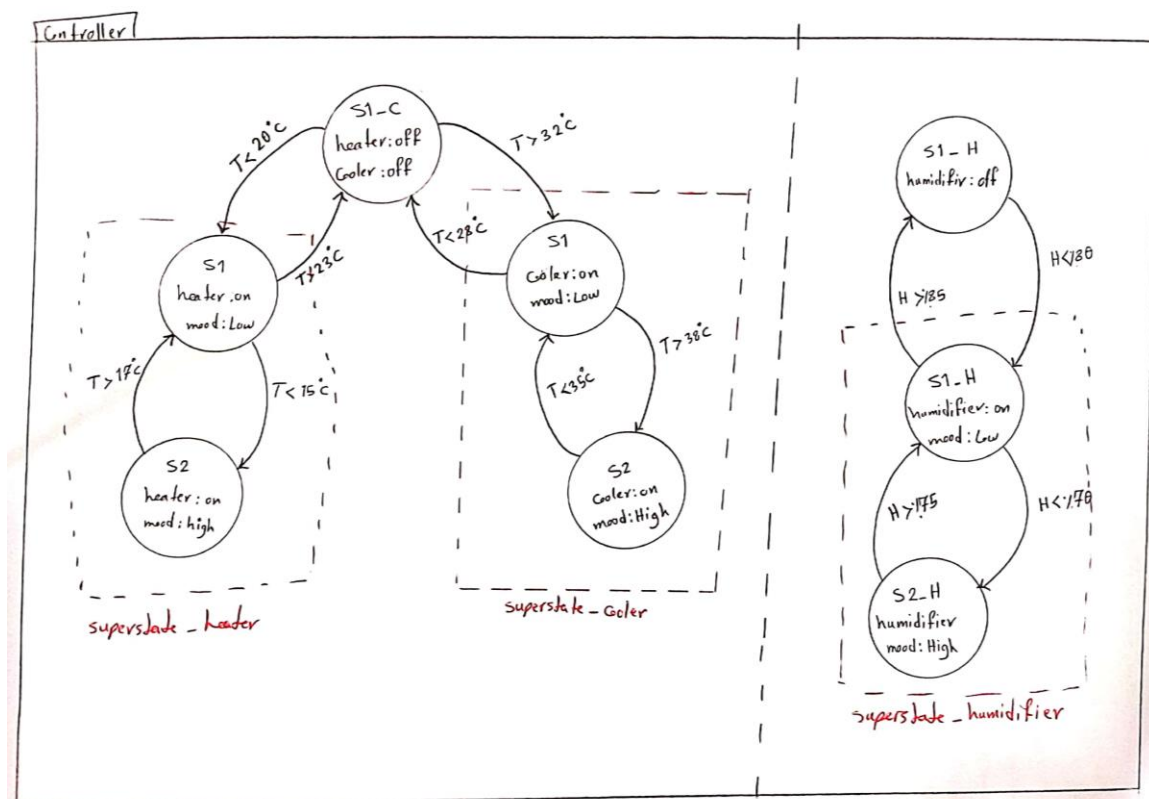 Controller
S1_C
heater:off
Cooler:off
T<20°C
T>32°C
T>23°C
T<28°C
S1
heater:on
mood:Low
T>17°C
T<15°C
S2
heater:on
mood:high
superstate_heater
S1
Cooler:on
mood:Low
T>38°C
T<35°C
S2
Cooler:on
mood:High
superstate_Cooler
S1_H
humidifir:off
H>%85
H<%80
S1_H
humidifier:on
mood:Low
H>%75
H<%70
S2_H
humidifier
mood:High
superstate_humidifier